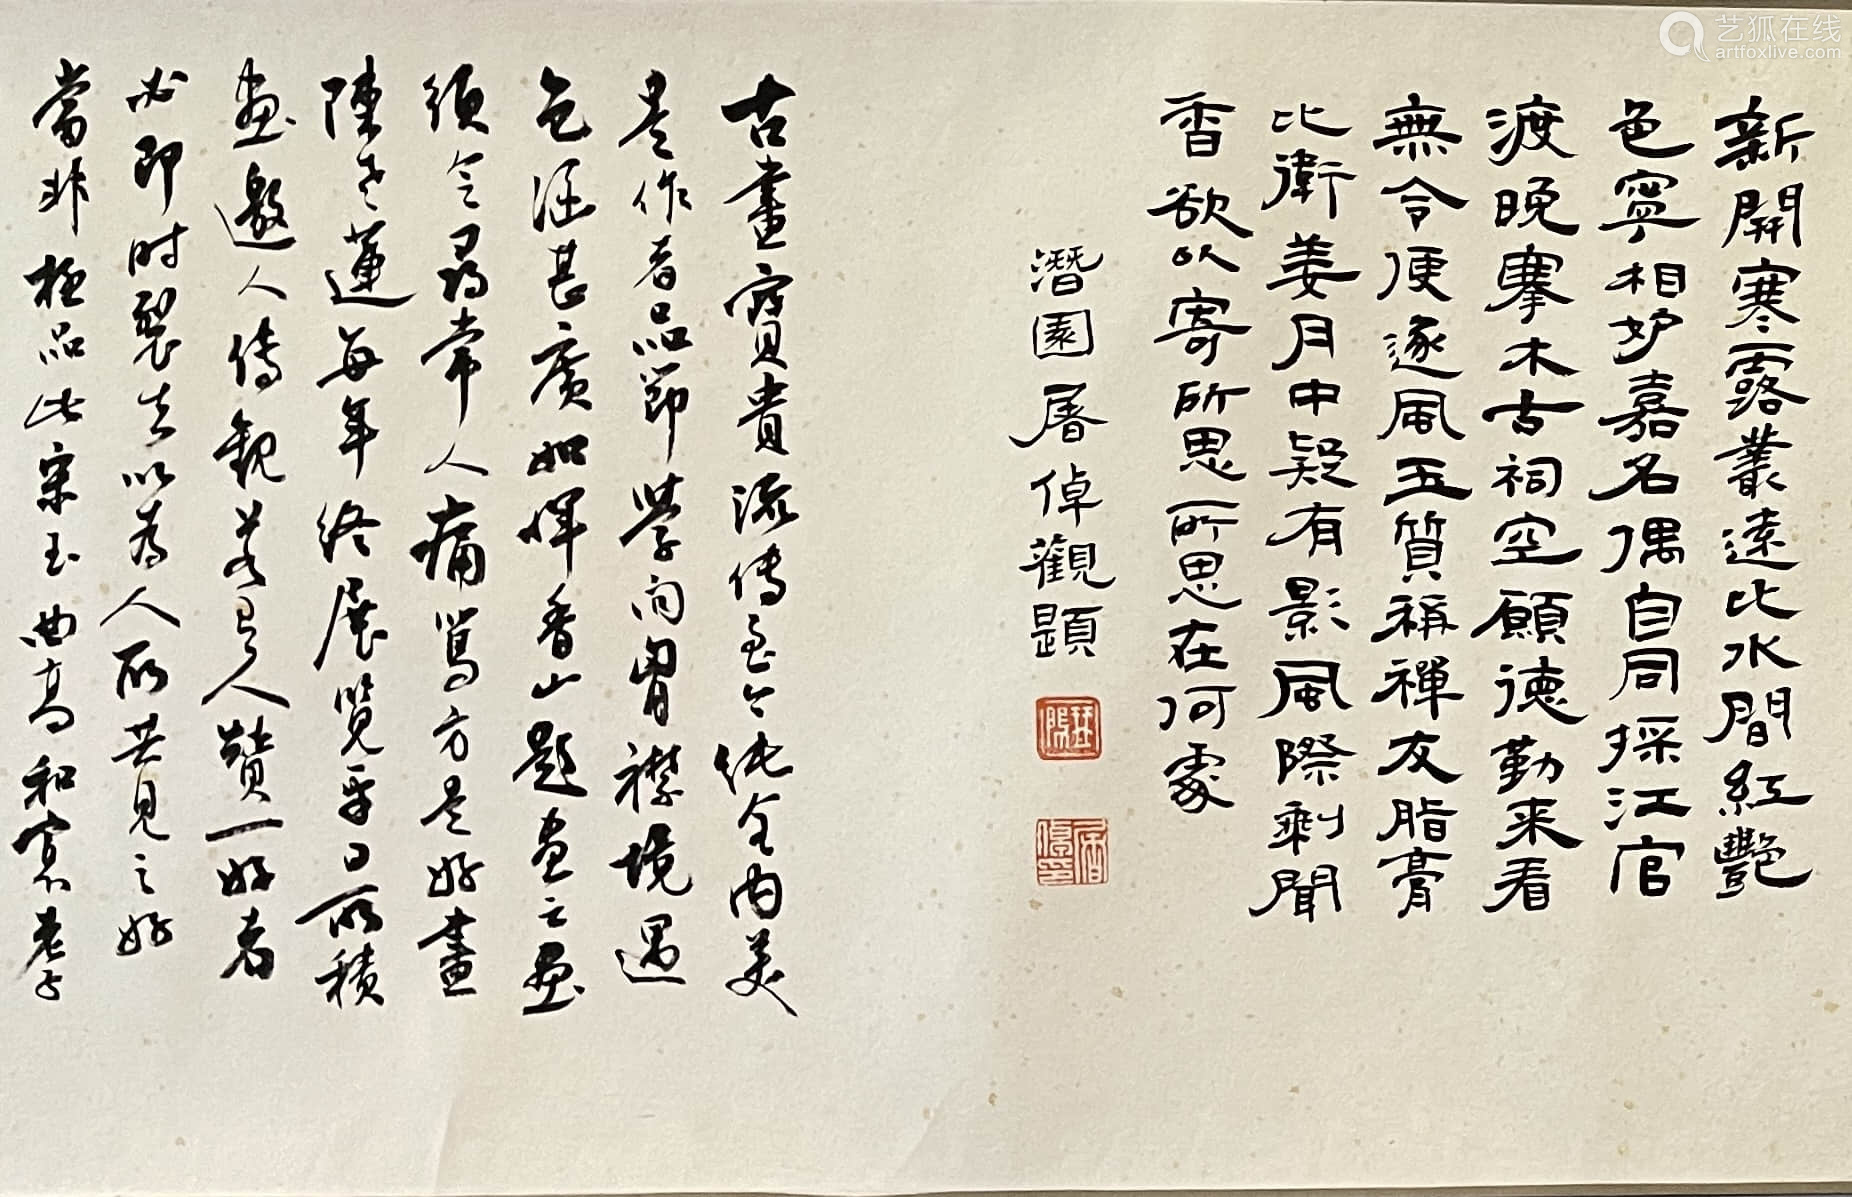 新開寒露叢遠比水間紅艷
色寧相妒嘉名偶自同採江官
渡晚搴木古祠空願德勤來看
無令便逐風玉質稱禪友脂膏
比衛姜月中疑有影風際剩聞
香欲以寄所思所思在何處
潛園屠倬觀題
古畫寶貴流傳至今純全內美
是作者品節學問胸襟境遇
包涵甚廣如惲香山題畫云畫
須令尋常人痛罵方是好畫
陳老蓮每年終展覽平日所積
畫邀人傳觀若有人贊一好者
必即時裂去以為人所共見之好
當非極品此宋玉曲高和寡老子
艺狐在线
artfoxlive.com